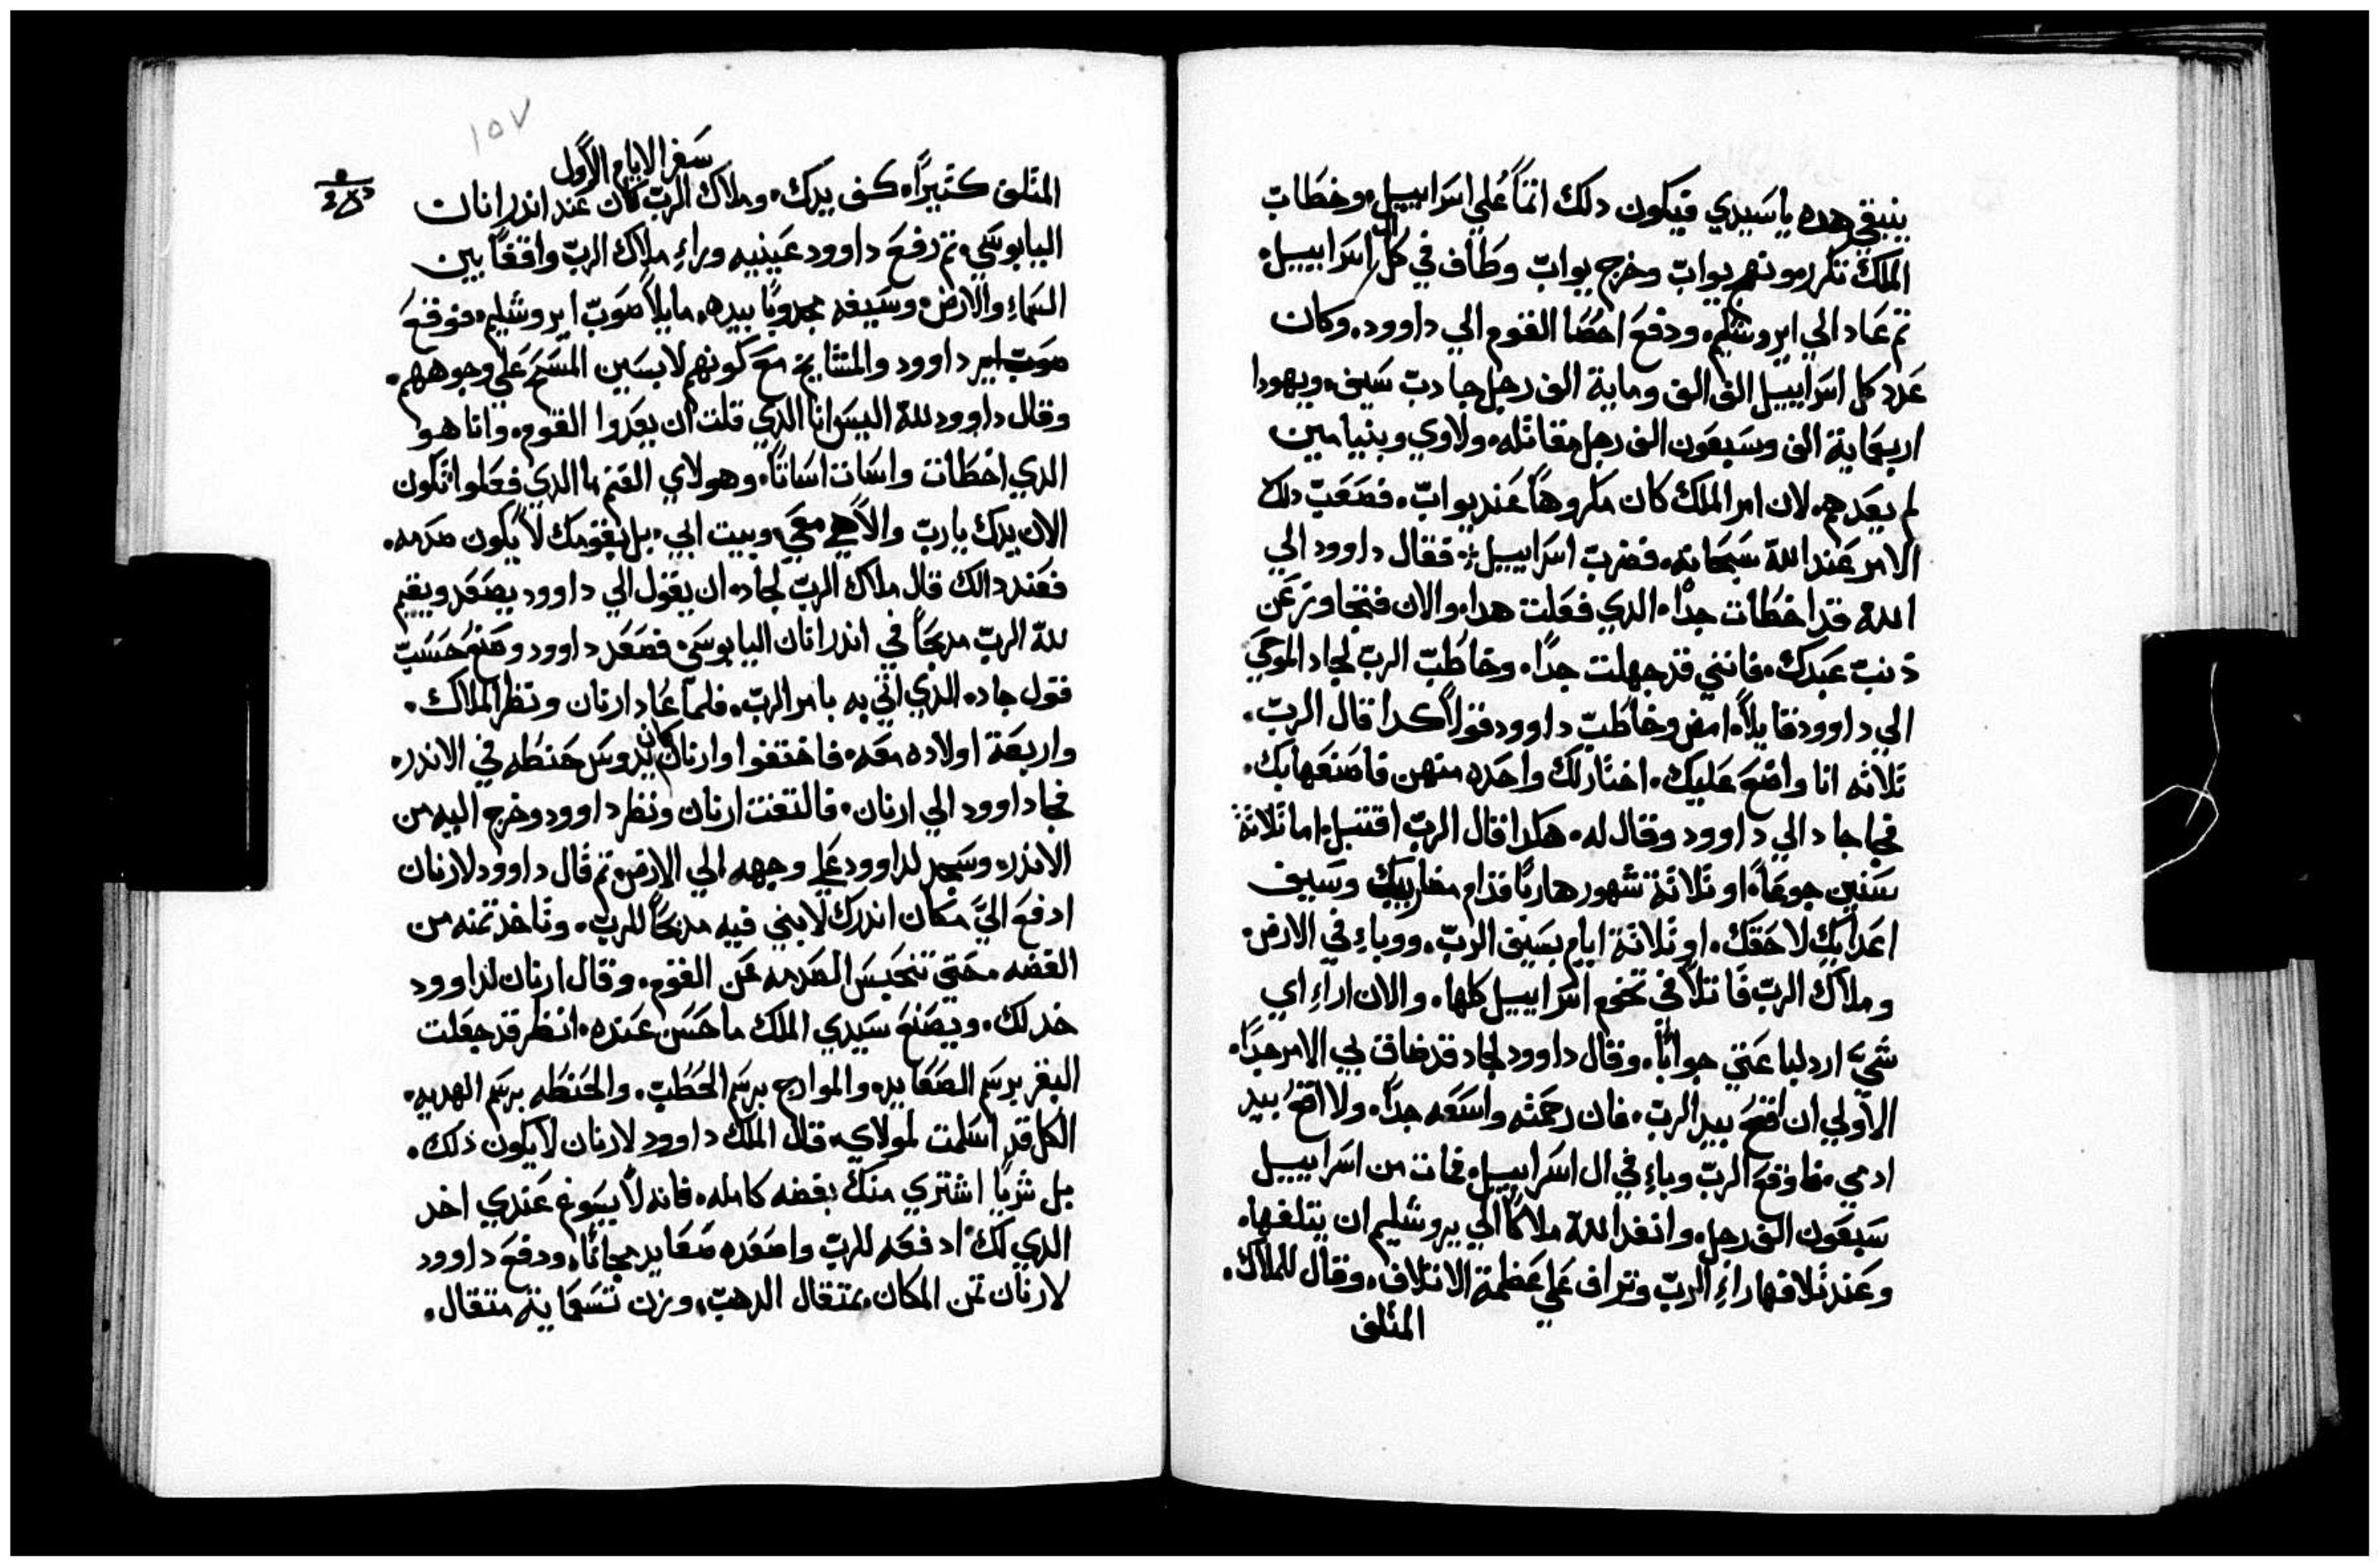 ينبغي هده يا سيدي فيكون دلك اثمًا علي اسراييل وخطاب
الملك تكرر مونهم يواب وخرج يواب وطاف في كل ال اسراييل
ثم عاد الي ايروشليم ودفع احصا القوم الي داوود وكان
عدد كل اسراييل الف الف وماية الف رجل جادب سيف ويهودا
اربعماية الف وسبعون الف رجل مقاتله ولاوي وبنيامين
لم يعدهم لان امر الملك كان مكروهًا عند يواب فصعب دلك
الامر عند الله سبحانه فضرب اسراييل فقال داوود الي
الله قد اخطات جدًا الدي فعلت هدا والان فتجاوز عن
دنب عبدك فانني قد جهلت جدًا وخاطب الرب لجاد الموحي
الي داوود قايلاً امض وخاطب داوود قولاً كدا قال الرب
ثلاثه انا واضع عليك اختار لك واحده منهن فاصنعها بك
فجا جاد الي داوود وقال له هكدا قال الرب اقتبل اما ثلاثة
سنين جوعًا او ثلاثة شهور هاربًا قدام مضاربيك وسيف
اعدايك لاحقك او ثلاثة ايام بسيف الرب ووباء في الارض
وملاك الرب قاتلاً في تخوم اسراييل كلها والان اراء اي
شيء ارد لباعتي جوابًا وقال داوود لجاد قد ضاق بي الامر جدًا
الاولي ان اقع بيد الرب فان رحمته واسعه جدًا ولا اقع بيد
ادمي فاوقع الرب وباء في ال اسراييل فمات من اسراييل
سبعون الف رجل وانفد الله ملاكًا الي يروشليم ان يتلفها
وعند تلافها راء الرب وتراف علي عظمة الاتلاف وقال للملاك
المتلف
١٥٧
سفر الايام الاول
المتلف كثيرًا كف يدك وملاك الرب كان عند اندر انان
اليابوسي ثم رفع داوود عينيه وراء ملاك الرب واقفًا بين
السماء والارض وسيفه مجدوبًا بيده مايلاً صوب ايروشليم فوقع
داوود والمشايخ مع كونهم لابسين المسح علي وجوههم
وقال داوود لله اليس انا الدي قلت ان يعدوا القوم وانا هو
الدي اخطات واسات اساتًا وهولاي الغنم ما الدي فعلوا تكون
الان يدك يا رب والاهي معي وبيت ابي بل بقومك لا يكون صدمه
فعند دالك قال ملاك الرب لجاد ان يقول الي داوود يصعد ويقيم
لله الرب مدبحًا في اندر انان اليابوسي فصعد داوود وصنع حسب
قول جاد الدي اتي به بامر الرب فلما عاد ارنان ونظر الملاك
واربعة اولاده معه فاختفوا وارنان كان يدوس حنطه في الاندر
فجا داوود الي ارنان فالتفت ارنان ونظر داوود وخرج اليه من
الاندر وسجد لداوود علي وجهه الي الارض ثم قال داوود لارنان
ادفع اليّ مكان اندرك لابني فيه مدبحًا للرب وتاخد ثمنه من
الفضه حتي تنحبس الصدمه عن القوم وقال ارنان لداوود
خد لك ويصنع سيدي الملك ما حسن عنده انظر قد جعلت
البقر برسم الصعايد والموارج برسم الحطب والحنطه برسم الهديه
الكل قد اسلمت لمولاي قال الملك داوود لارنان لا يكون دلك
بل شريًا اشتري منك بفضه كامله فانه لا يسوغ عندي اخد
الدي لك ادفعه للرب واصعده صعايد مجانًا ودفع داوود
لارنان ثمن المكان بمثقال الدهب وزن تسعماية مثقال